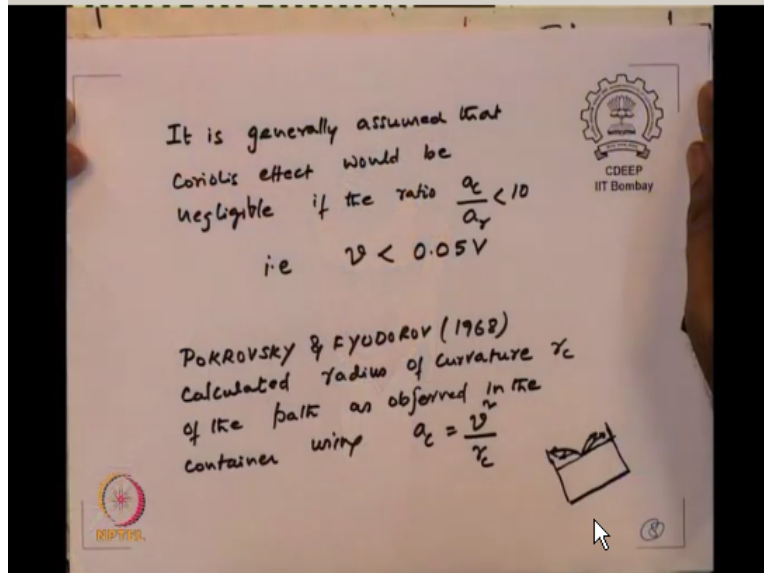 It is generally assumed that
Coriolis effect would be
negligible if the ratio a_c/a_r < 10
i.e v < 0.05V
POKROVSKY & FYODOROV (1968)
Calculated radius of curvature r_c
of the path as observed in the
container using a_c = v²/r_c
CDEEP
IIT Bombay
NPTEL
8